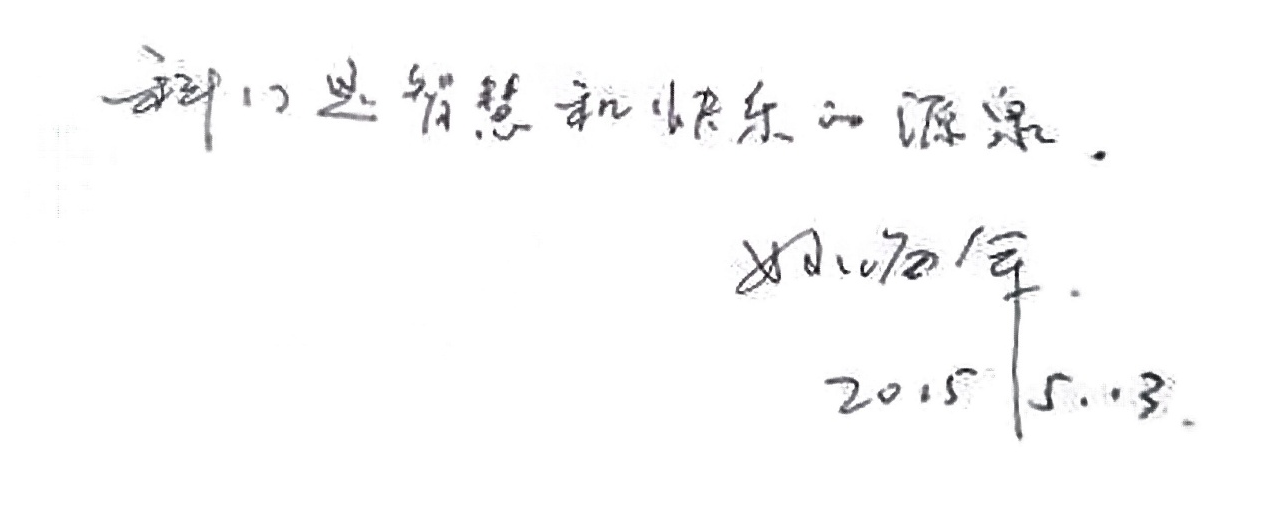 科幻是智慧和快乐的源泉.
姚海军.
2015 5.13.